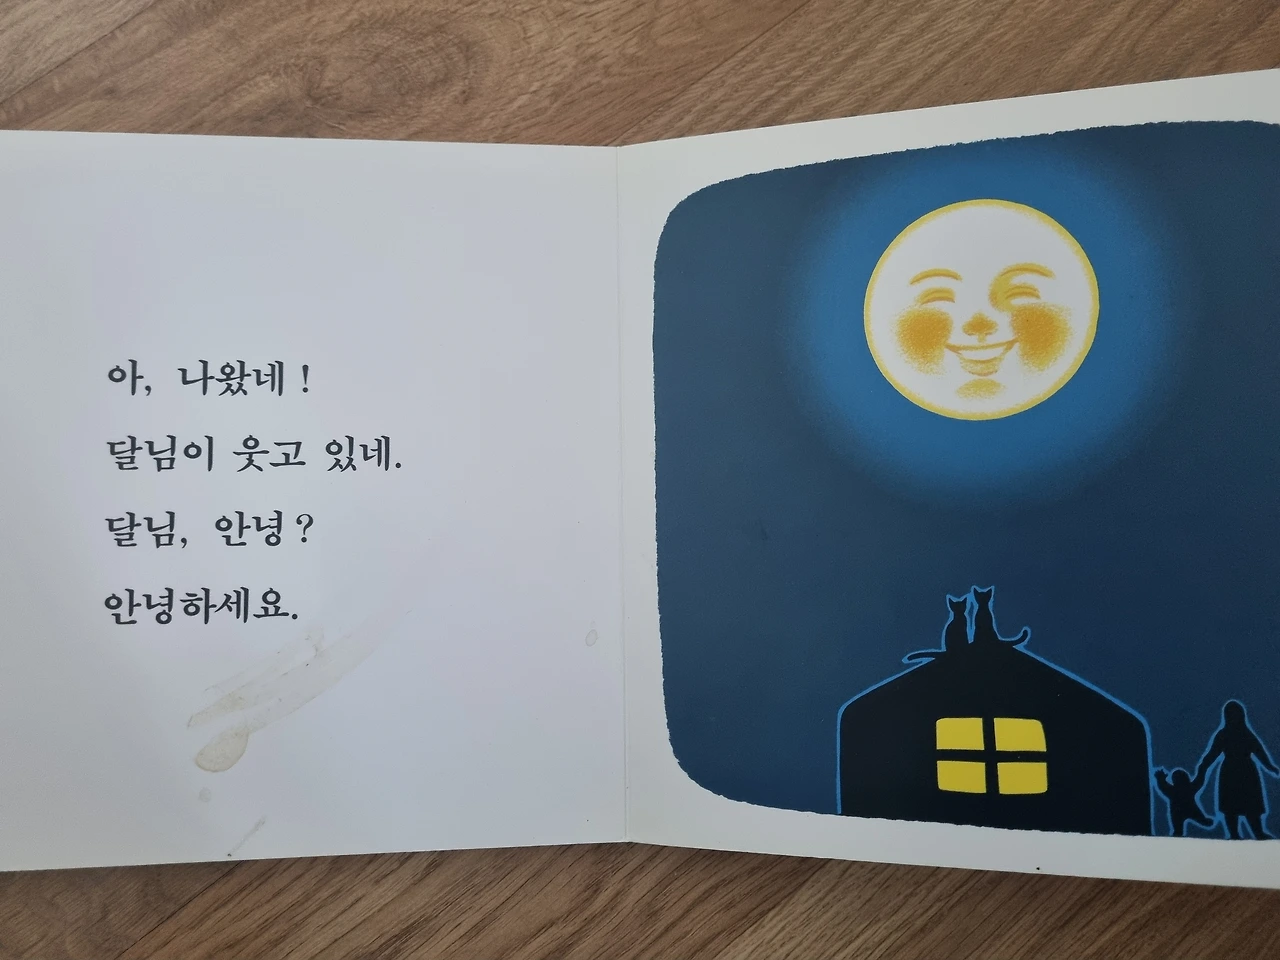 아, 나왔네!
달님이 웃고 있네.
달님, 안녕?
안녕하세요.